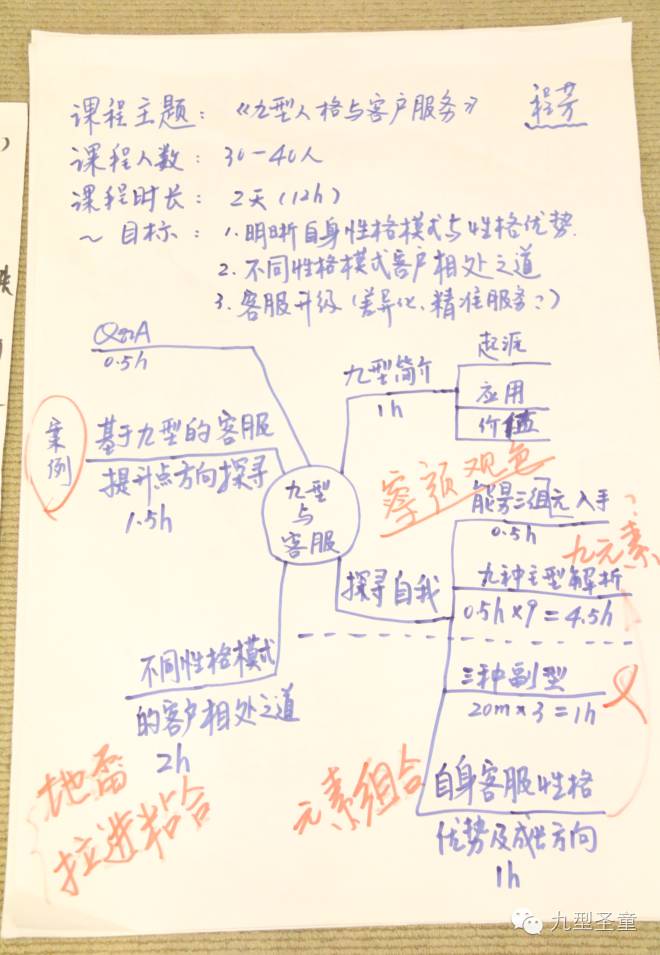 课程主题：《九型人格与客户服务》 程芳
课程人数：30-40人
课程时长：2天(12h)
~目标：1.明晰自身性格模式与性格优势.
2.不同性格模式客户相处之道
3.客服升级(差异化、精准服务?)
Q&A
0.5h
九型简介
1h
起源
应用
价值
案例
基于九型的客服
提升点方向探寻
1.5h
九型
与
客服
察颜观色
能量三组元入手?
0.5h
九元素
探寻自我
九种主型解析
0.5h×9=4.5h
不同性格模式
的客户相处之道
2h
三种副型
20m×3=1h
地雷
拉进粘合
元素组合
自身客服性格
优势及成长方向
1h
九型圣童